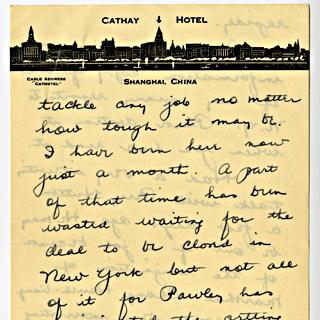 CATHAY HOTEL
CABLE ADDRESS
"CATHOTEL"
SHANGHAI, CHINA
tackle any job no matter
how tough it may be.
I have been here now
just a month. A part
of that time has been
wasted waiting for the
deal to be closed in
New York but not all
of it for Pawley has